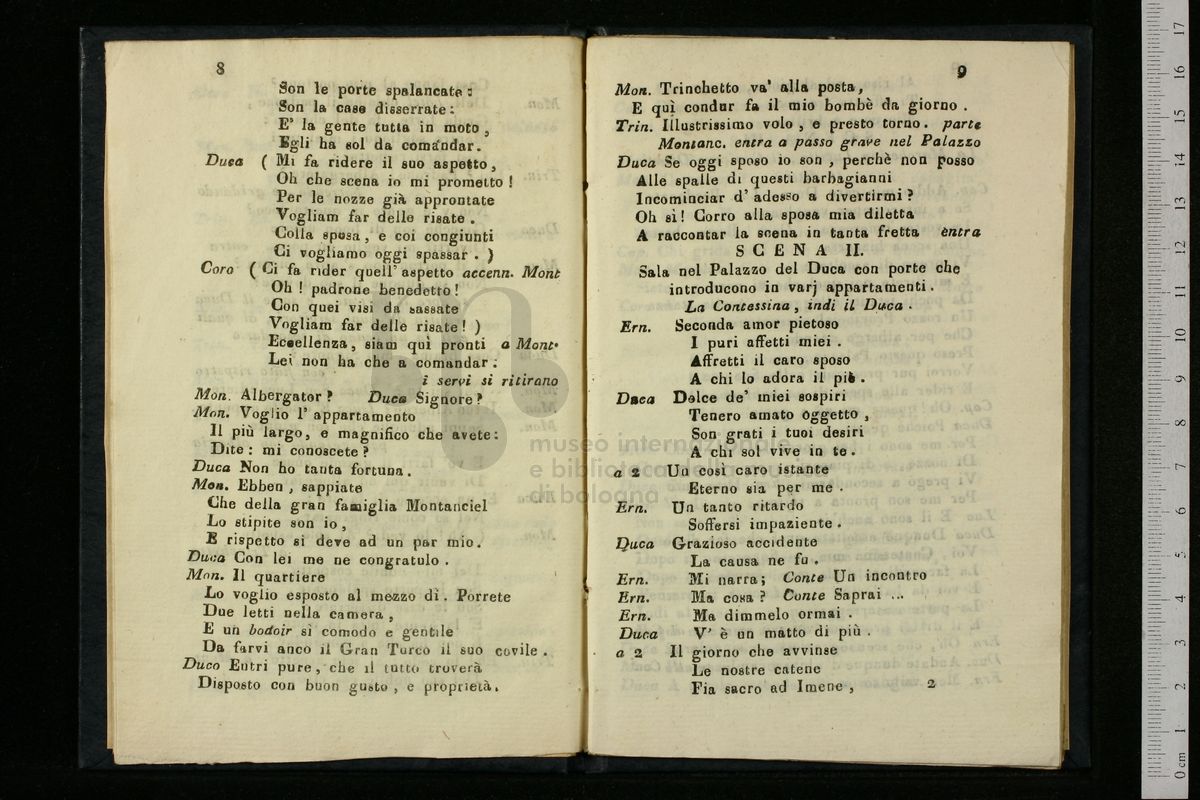 8
Son le porte spalancate :
Son la case disserrate :
E' la gente tutta in moto ,
Egli ha sol da comandar.
Duca ( Mi fa ridere il suo aspetto ,
Oh che scena io mi prometto !
Per le nozze già approntate
Vogliam far delle risate .
Colla sposa , e coi congiunti
Ci vogliamo oggi spassar . )
Coro ( Ci fa rider quell' aspetto accenn. Mont
Oh ! padrone benedetto !
Con quei visi da sassate
Vogliam far delle risate ! )
Eccellenza , siam quì pronti a Mont.
Lei non ha che a comandar :
i servi si ritirano
Mon. Albergator ? Duca Signore ?
Mon. Voglio l' appartamento
Il più largo, e magnifico che avete :
Dite : mi conoscete ?
Duca Non ho tanta fortuna .
Mon. Ebben , sappiate
Che della gran famiglia Montanciel
Lo stipite son io ,
E rispetto si deve ad un par mio.
Duca Con lei me ne congratulo .
Mon. Il quartiere
Lo voglio esposto al mezzo dì. Porrete
Due letti nella camera ,
E un bodoir sì comodo e gentile
Da farvi anco il Gran Turco il suo covile .
Duco Entri pure, che il tutto troverà
Disposto con buon gusto , e proprietà.
9
Mon. Trinchetto va' alla posta,
E quì condur fa il mio bombè da giorno .
Trin. Illustrissimo volo , e presto torno. parte
Montanc. entra a passo grave nel Palazzo
Duca Se oggi sposo io son , perchè non posso
Alle spalle di questi barbagianni
Incominciar d' adesso a divertirmi ?
Oh sì ! Corro alla sposa mia diletta
A raccontar la scena in tanta fretta entra
SCENA II.
Sala nel Palazzo del Duca con porte che
introducono in varj appartamenti .
La Contessina , indi il Duca .
Ern. Seconda amor pietoso
I puri affetti miei .
Affretti il caro sposo
A chi lo adora il più .
Duca Dolce de' miei sospiri
Tenero amato oggetto ,
Son grati i tuoi desiri
A chi sol vive in te .
a 2 Un così caro istante
Eterno sia per me .
Ern. Un tanto ritardo
Soffersi impaziente .
Duca Grazioso accidente
La causa ne fu .
Ern. Mi narra ; Conte Un incontro
Ern. Ma cosa ? Conte Saprai ...
Ern. Ma dimmelo ormai .
Duca V' è un matto di più .
a 2 Il giorno che avvinse
Le nostre catene
Fia sacro ad Imene ,
2
museo internazionale
e biblioteca della musica
di bologna
0 cm 1 2 3 4 5 6 7 8 9 10 11 12 13 14 15 16 17